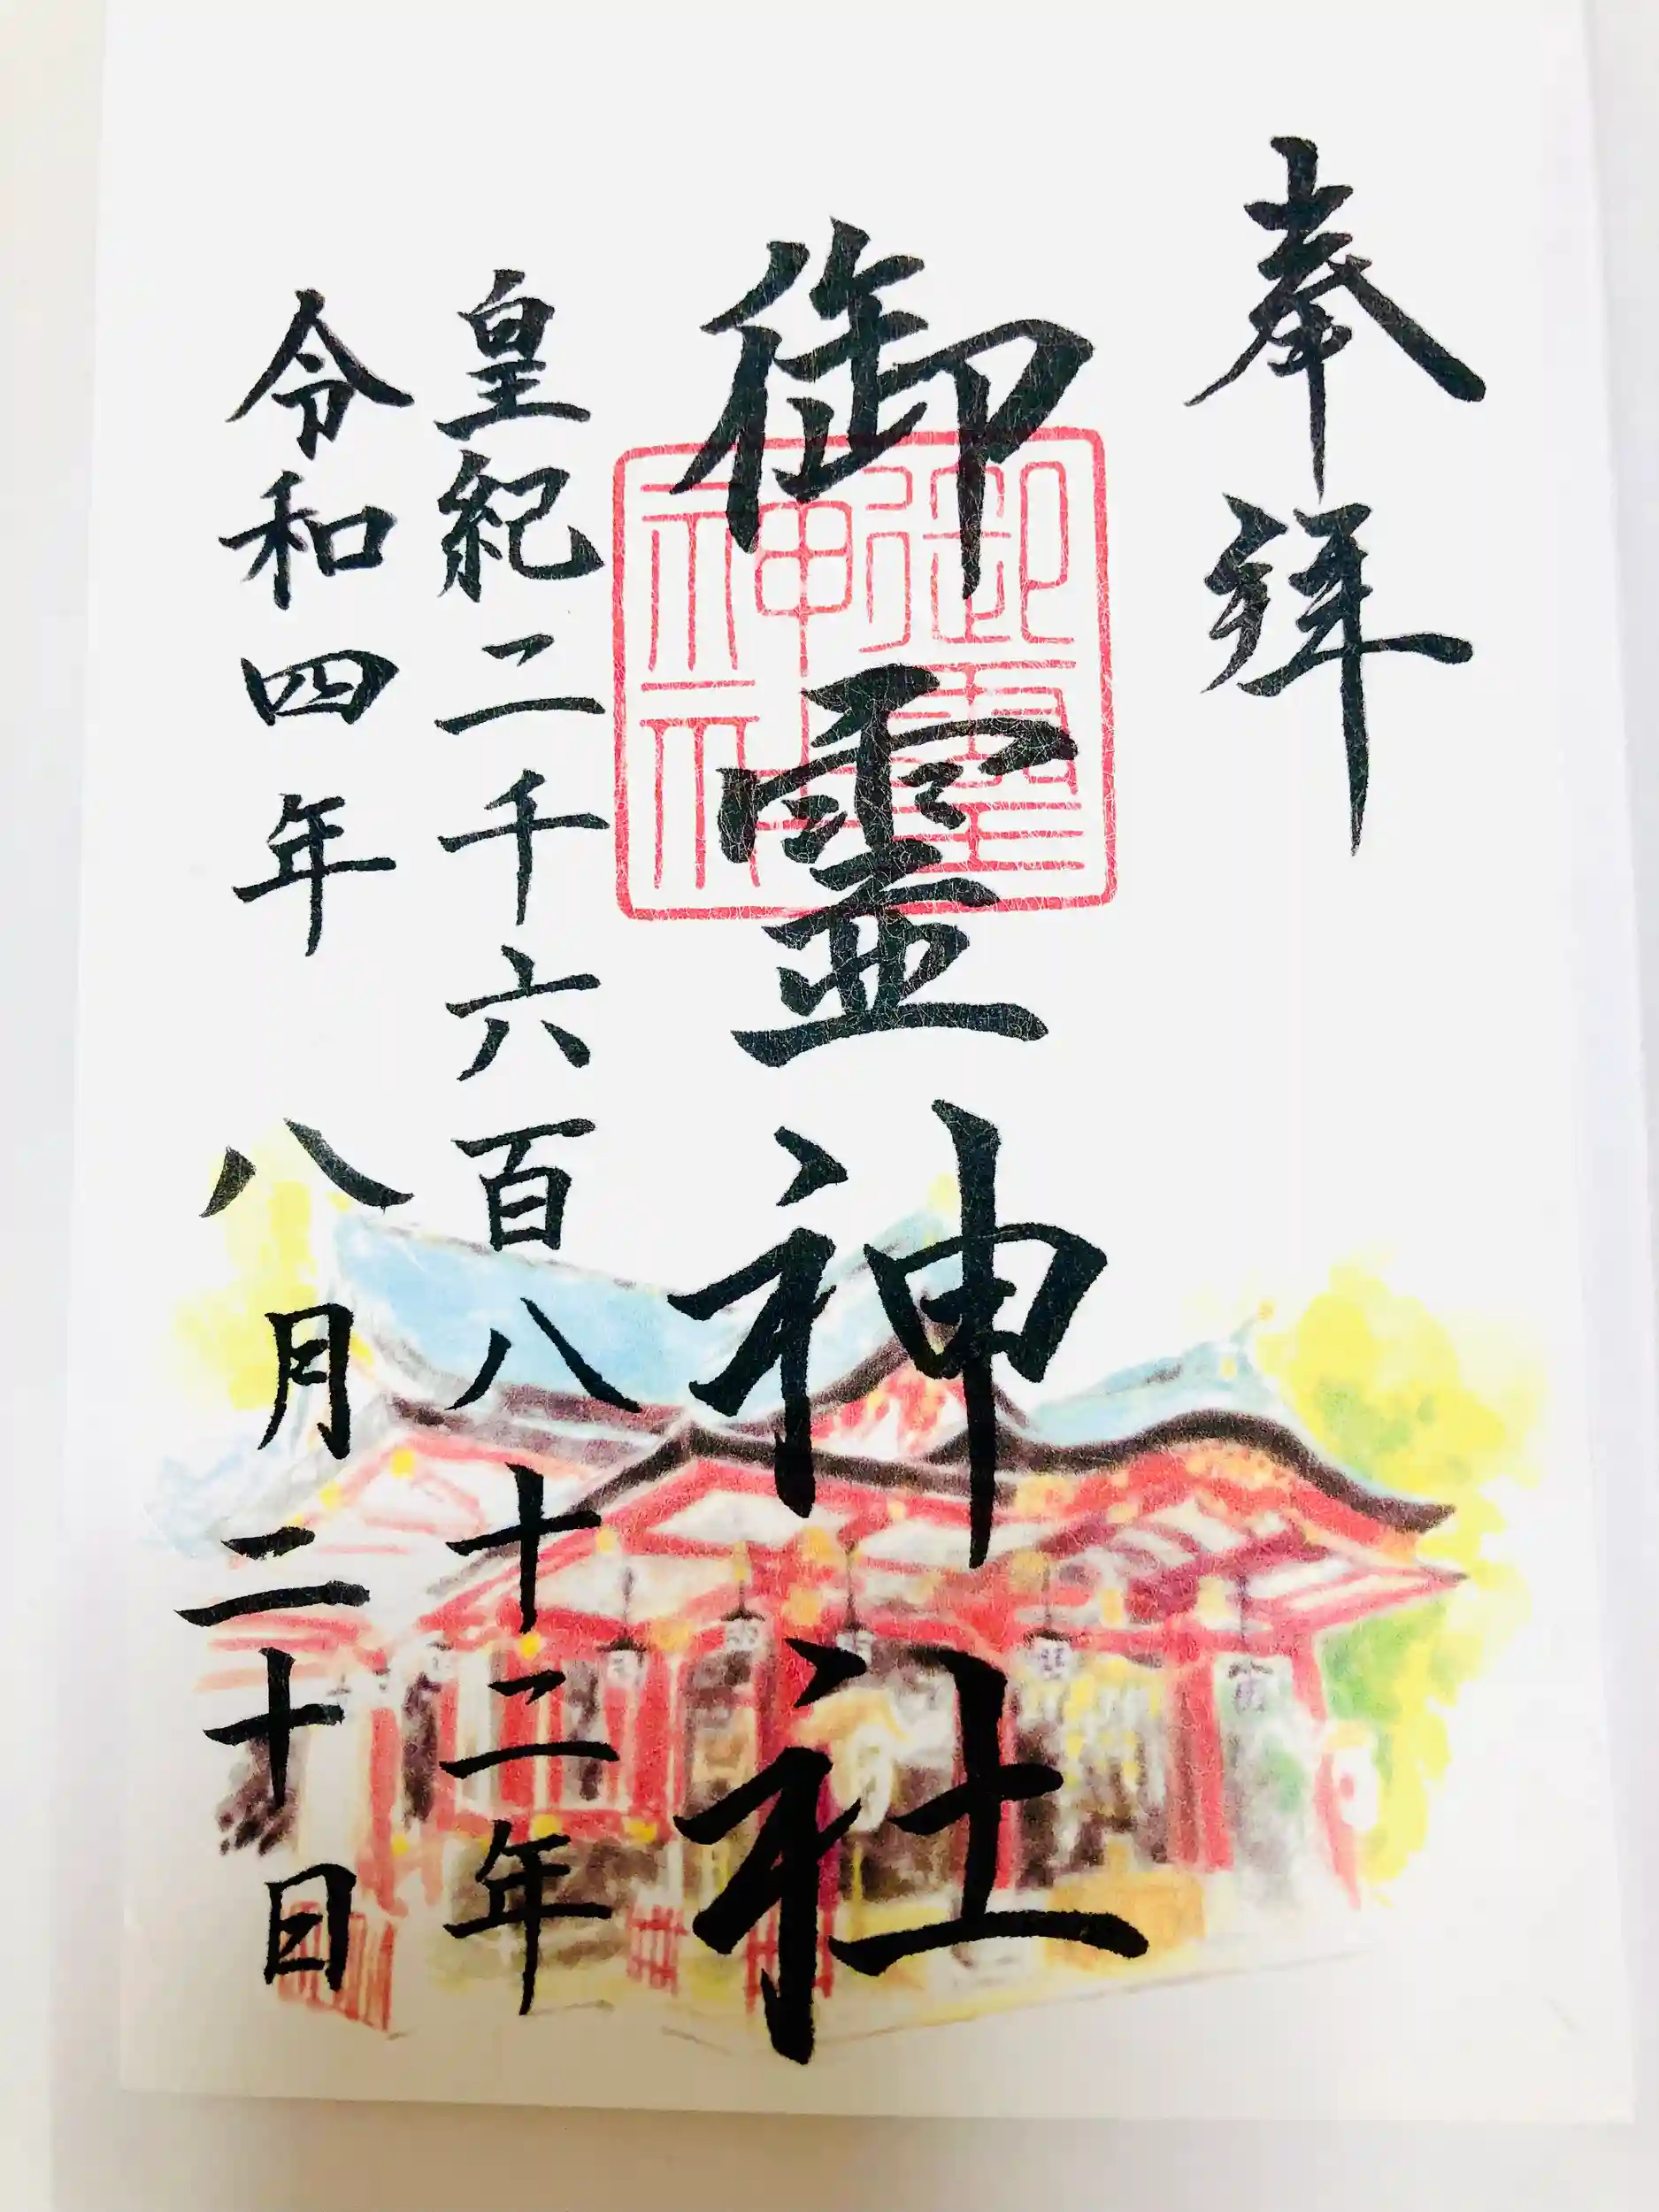 奉拝
御霊神社
御靈神社
皇紀二千六百八十二年
令和四年八月二十日